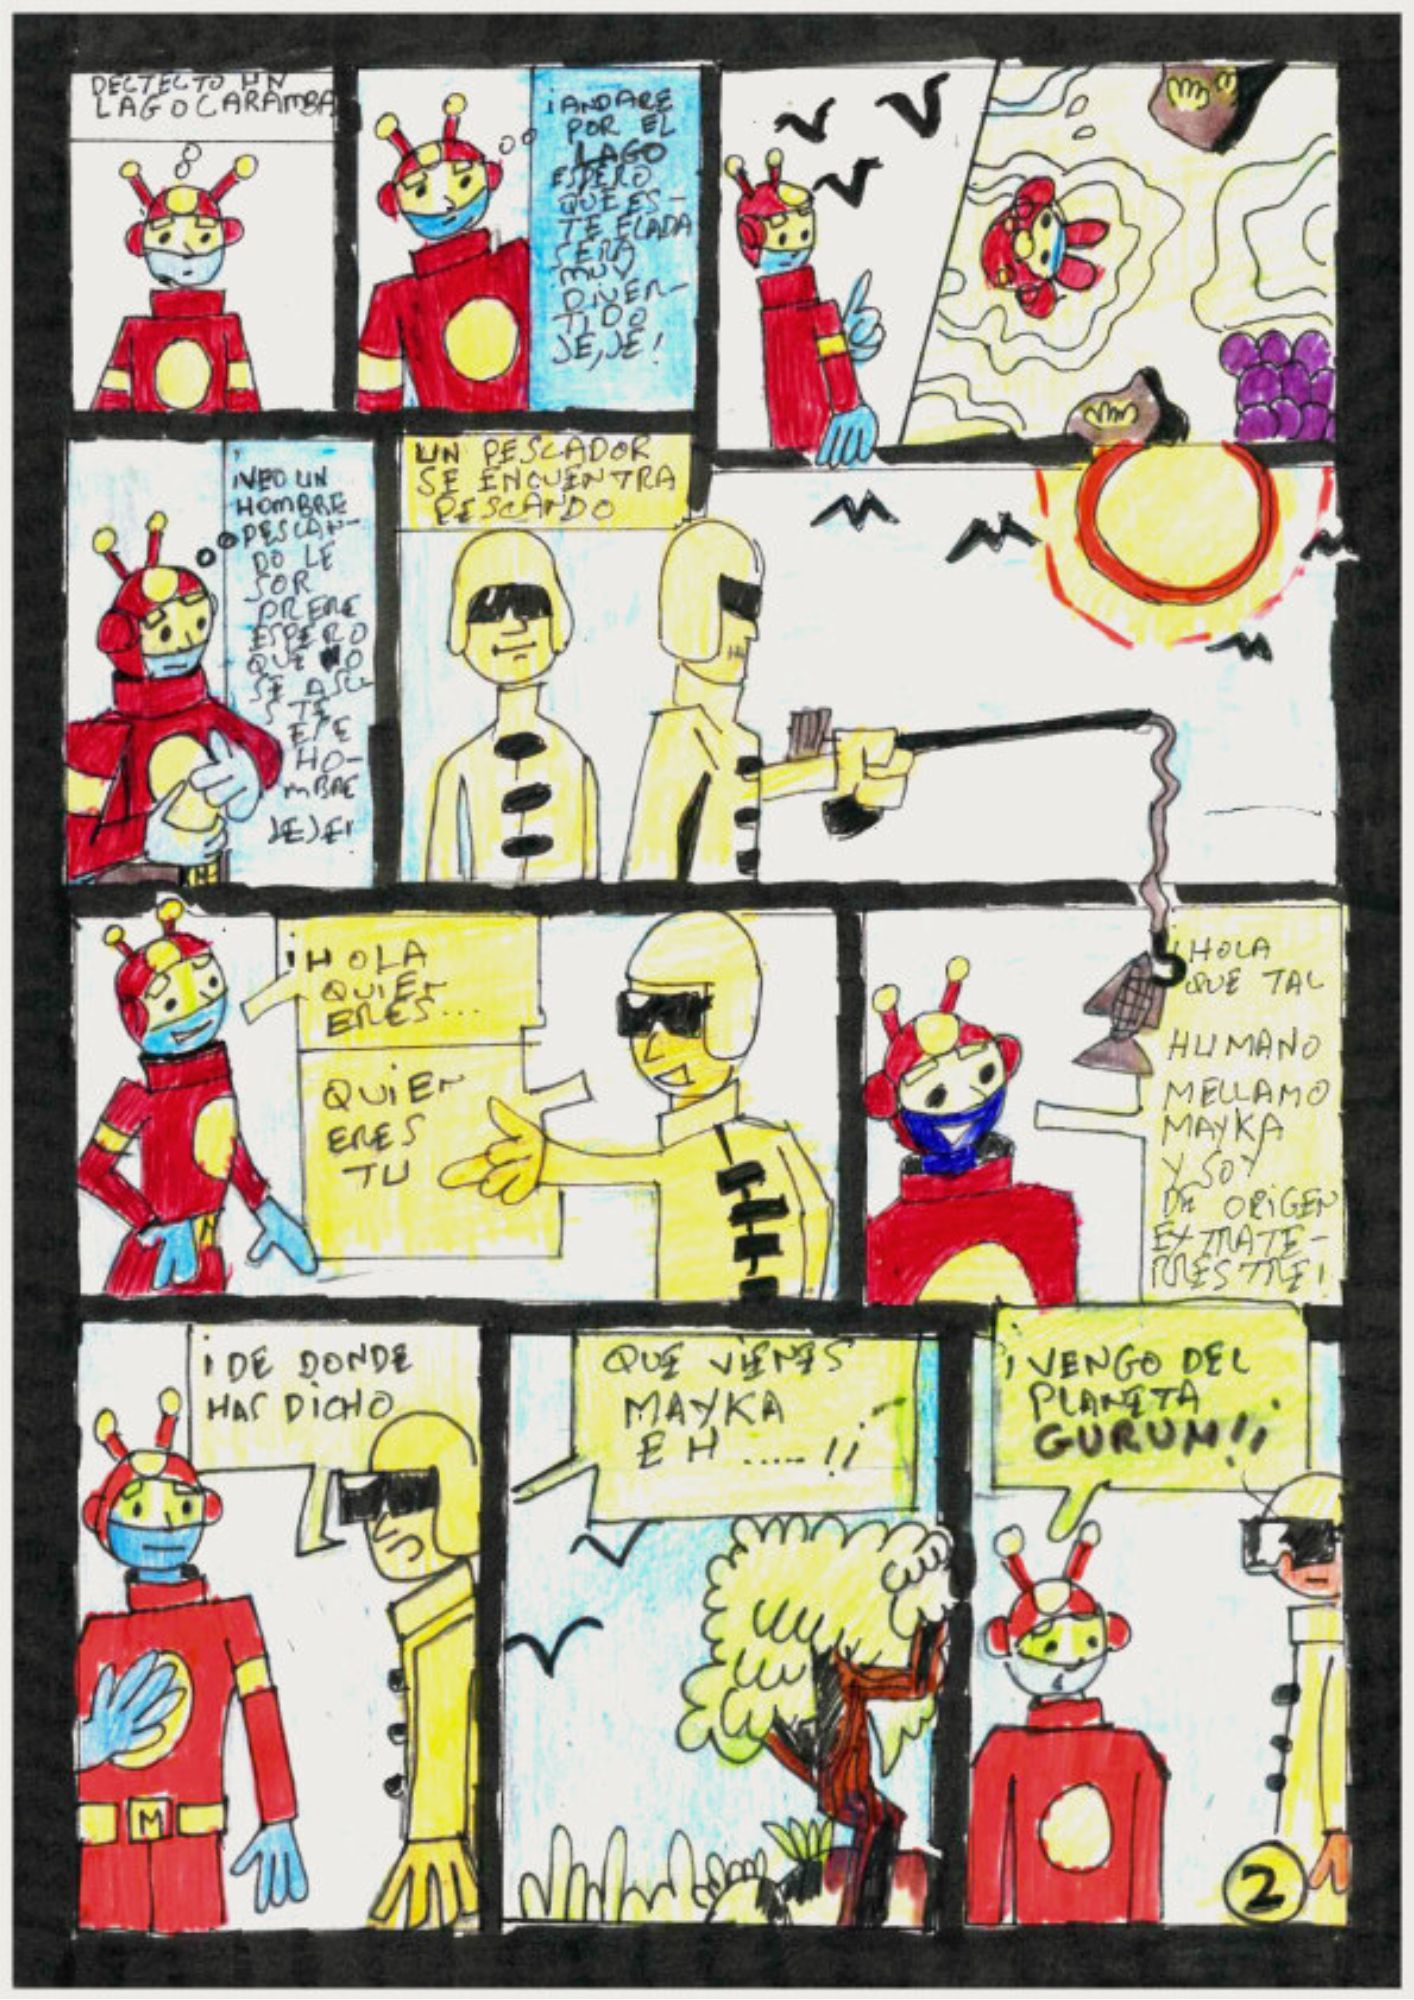 DECTECTO UN
LAGO CARAMBA
¡ANDARE
POR EL
LAGO
ESPERO
QUE ES-
TE ELADA
SERA
MUY
DIVER-
TIDO
JE, JE!
¡VEO UN
HOMBRE
PESCAN-
DO LE
SOR
PRENE
ESPERO
QUE NO
SE ASU
STE
ESE
HO-
MBRE
JEJE!
UN PESCADOR
SE ENCUENTRA
PESCANDO
¡HOLA
QUIEN
ERES...
QUIEN
ERES
TU
¡HOLA
QUE TAL
HUMANO
MELLAMO
MAYKA
Y SOY
DE ORIGEN
EXTRATE-
RRESTRE!
¡DE DONDE
HAS DICHO
M
QUE VIENES
MAYKA
EH .....!¡
¡VENGO DEL
PLANETA
GURUM!¡
2